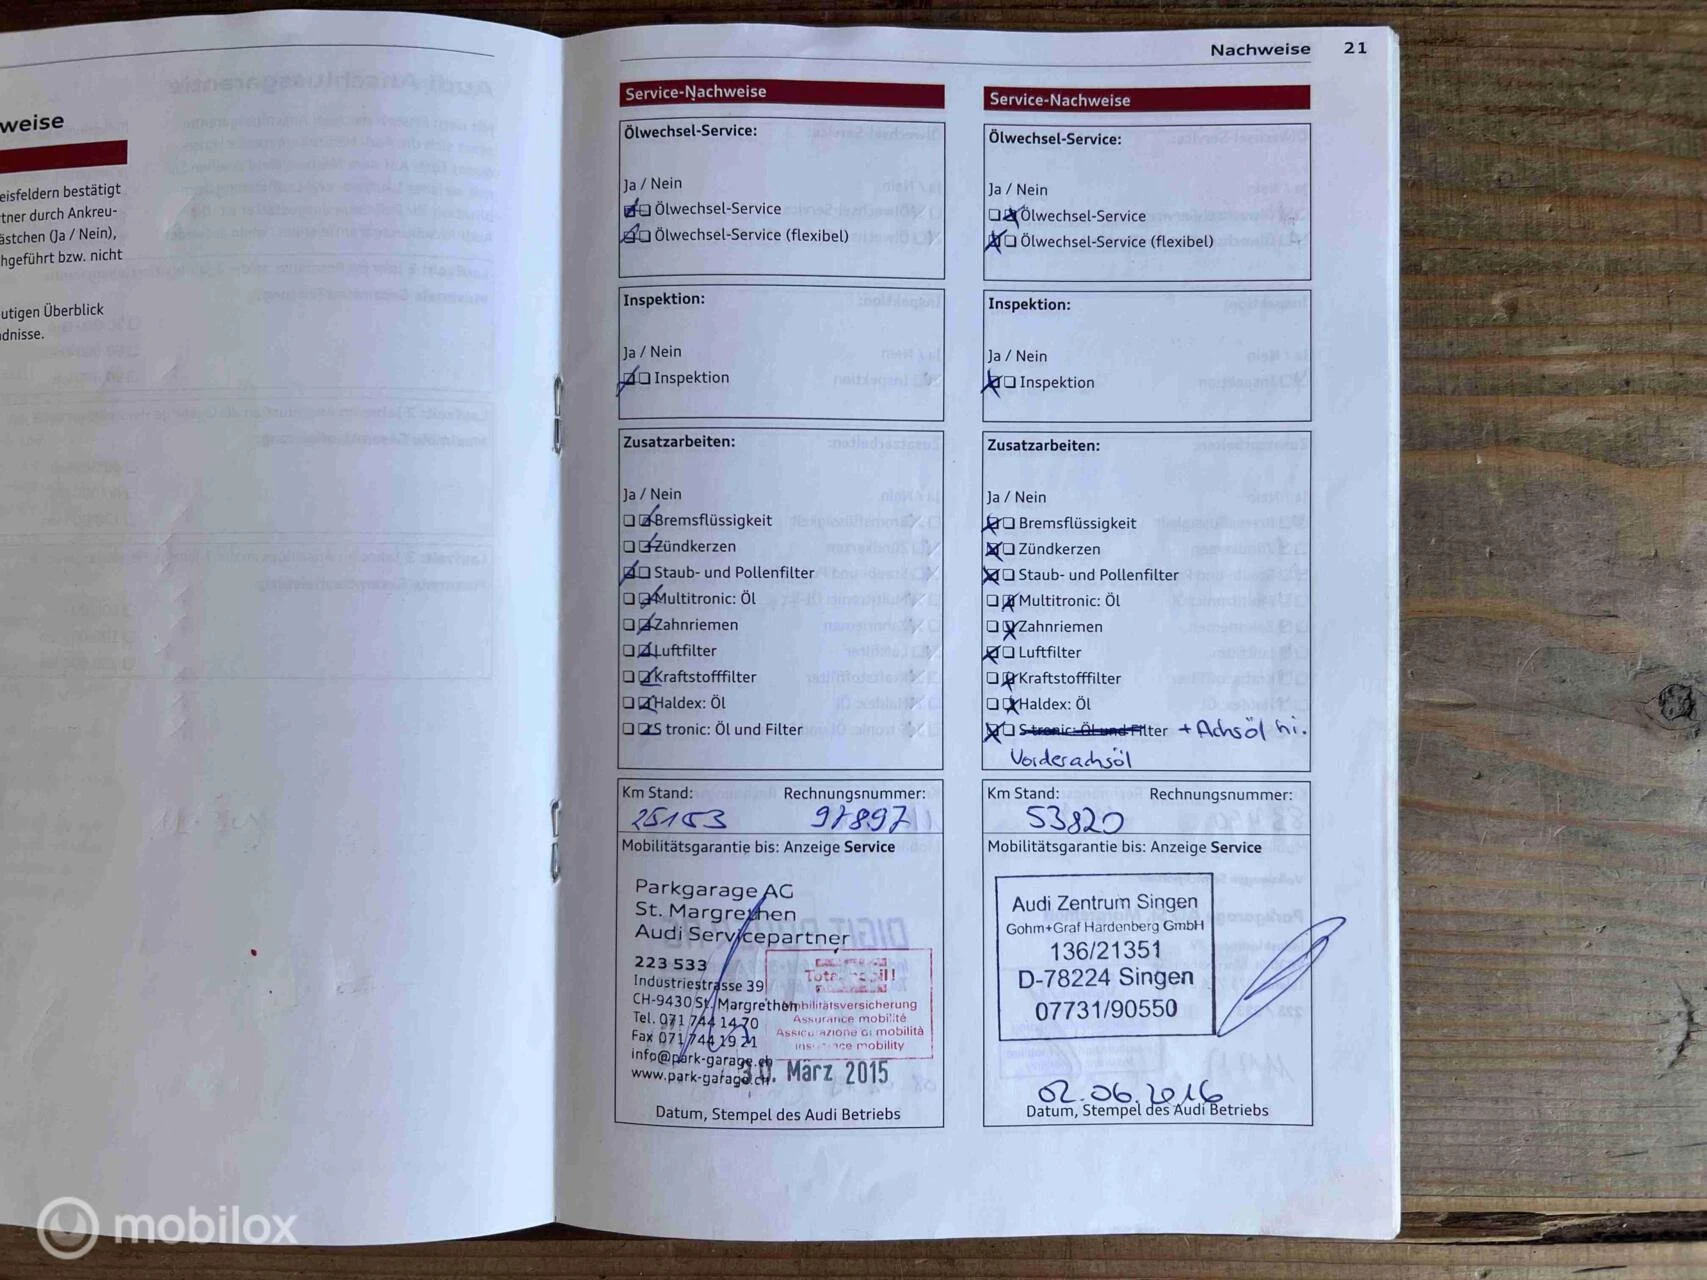 weise
eisfeldern bestätigt
tner durch Ankreu-
ästchen (Ja / Nein),
hgeführt bzw. nicht
utigen Überblick
dnisse.
Nachweise 21
Service-Nachweise
Ölwechsel-Service:
Ja / Nein
Ölwechsel-Service
Ölwechsel-Service (flexibel)
Inspektion:
Ja / Nein
Inspektion
Zusatzarbeiten:
Ja / Nein
Bremsflüssigkeit
Zündkerzen
Staub- und Pollenfilter
Multitronic: Öl
Zahnriemen
Luftfilter
Kraftstofffilter
Haldex: Öl
S tronic: Öl und Filter
Km Stand: Rechnungsnummer:
25153 97897
Mobilitätsgarantie bis: Anzeige Service
Parkgarage AG
St. Margrethen
Audi Servicepartner
223 533
Industriestrasse 39
CH-9430 St. Margrethen
Tel. 071 744 14 70
Fax 071 744 19 21
info@park-garage.ch
www.park-garage.ch
Mobilitätsversicherung
Assurance mobilité
Assicurazione di mobilità
insurance mobility
30. März 2015
Datum, Stempel des Audi Betriebs
Service-Nachweise
Ölwechsel-Service:
Ja / Nein
Ölwechsel-Service
Ölwechsel-Service (flexibel)
Inspektion:
Ja / Nein
Inspektion
Zusatzarbeiten:
Ja / Nein
Bremsflüssigkeit
Zündkerzen
Staub- und Pollenfilter
Multitronic: Öl
Zahnriemen
Luftfilter
Kraftstofffilter
Haldex: Öl
S tronic: Öl und Filter + Achsöl hi.
Vorderachsöl
Km Stand: Rechnungsnummer:
53820
Mobilitätsgarantie bis: Anzeige Service
Audi Zentrum Singen
Gohm+Graf Hardenberg GmbH
136/21351
D-78224 Singen
07731/90550
02.06.2016
Datum, Stempel des Audi Betriebs
mobilox